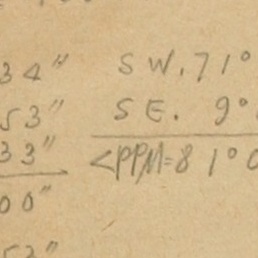 34" SW. 71°
53" SE. 9°
33" <PPM=81°0
00"
53"